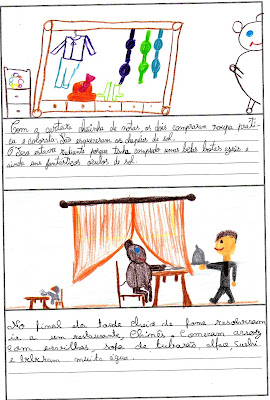 Com a carteira cheinha de notas, os dois compraram roupa práti-
ca e colorida. Não esqueceram os chapéus de sol.
O Zeca estava radiante porque tinha comprado umas belas botas azuis e
ainda uns fantásticos óculos de sol.
No final da tarde cheios de fome resolveram
ir a um restaurante Chinês. Comeram arroz
com ervilhas, sopa de tubarão, alface, sushi
e beberam muita água.